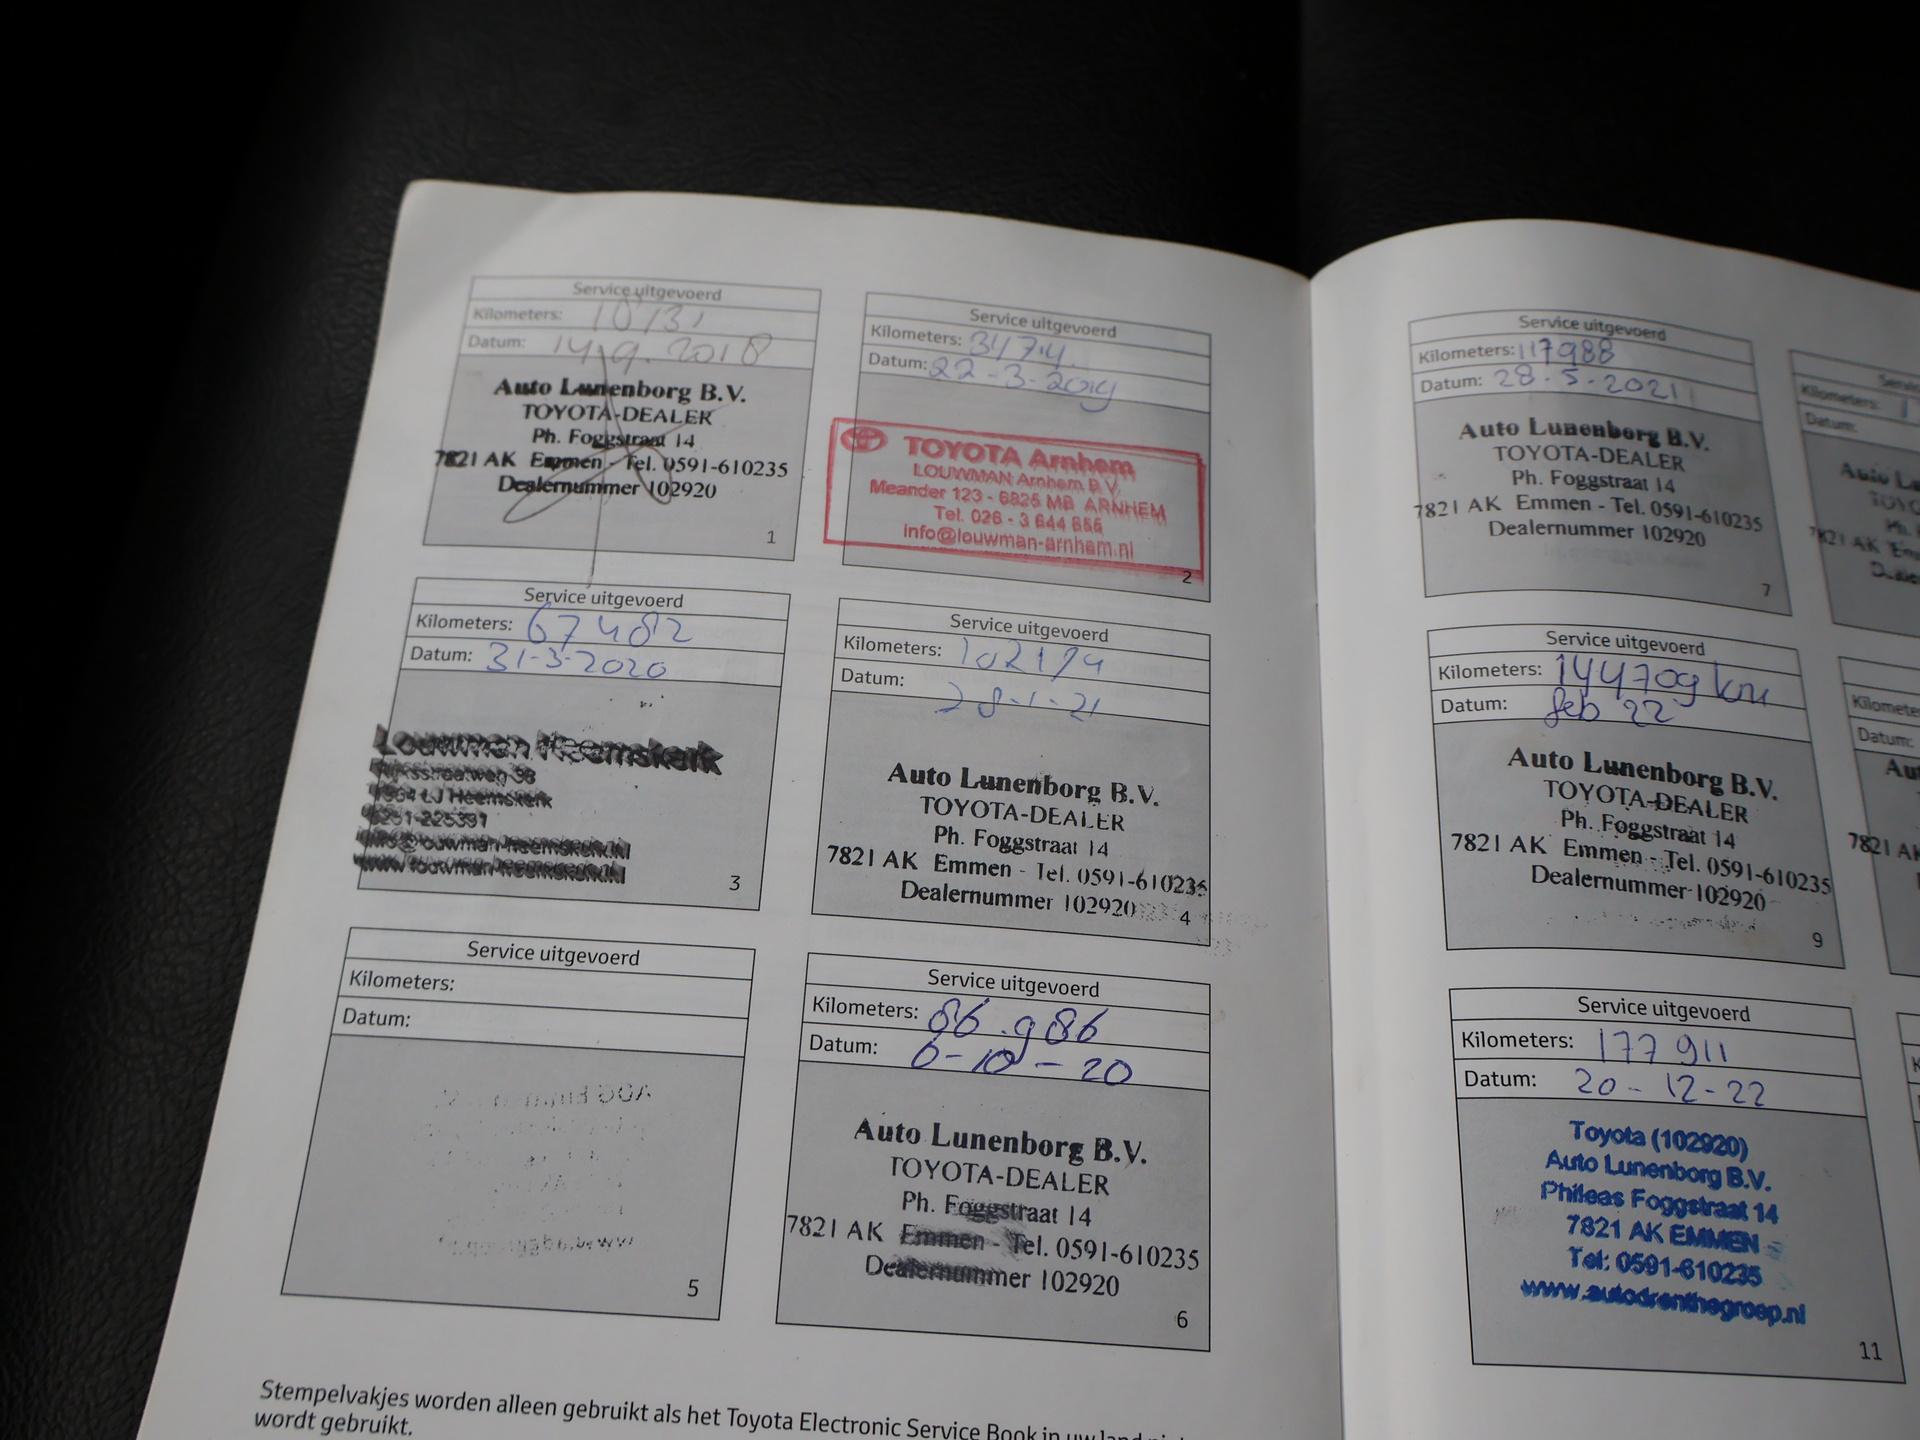 Service uitgevoerd
Kilometers:
Datum: 14.9.2018
Auto Lunenborg B.V.
TOYOTA-DEALER
Ph. Foggstraat 14
7821 AK Emmen - Tel. 0591-610235
Dealernummer 102920
1
Service uitgevoerd
Kilometers:
Datum: 22-3-2019
TOYOTA Arnhem
LOUWMAN Arnhem B.V.
Meander 123 - 6825 MB ARNHEM
Tel. 026 - 3 644 655
info@louwman-arnhem.nl
2
Service uitgevoerd
Kilometers: 67482
Datum: 31-3-2020
Louwman Heemskerk
Rijksstraatweg
LJ Heemskerk
0251-225391
info@louwman-heemskerk.nl
www.louwman-heemskerk.nl
3
Service uitgevoerd
Kilometers: 102174
Datum: 28-1-21
Auto Lunenborg B.V.
TOYOTA-DEALER
Ph. Foggstraat 14
7821 AK Emmen - Tel. 0591-610235
Dealernummer 102920
4
Service uitgevoerd
Kilometers:
Datum:
5
Service uitgevoerd
Kilometers: 86.986
Datum: 6-10-20
Auto Lunenborg B.V.
TOYOTA-DEALER
Ph. Foggstraat 14
7821 AK Emmen - Tel. 0591-610235
Dealernummer 102920
6
Stempelvakjes worden alleen gebruikt als het Toyota Electronic Service Book in uw land
wordt gebruikt.
Service uitgevoerd
Kilometers: 117988
Datum: 28-5-2021
Auto Lunenborg B.V.
TOYOTA-DEALER
Ph. Foggstraat 14
7821 AK Emmen - Tel. 0591-610235
Dealernummer 102920
7
Kilometers:
Datum:
7821 AK
Service uitgevoerd
Kilometers: 144709 km
Datum: feb 22
Auto Lunenborg B.V.
TOYOTA-DEALER
Ph. Foggstraat 14
7821 AK Emmen - Tel. 0591-610235
Dealernummer 102920
9
Datum:
7821 AK
Service uitgevoerd
Kilometers: 177 911
Datum: 20-12-22
Toyota (102920)
Auto Lunenborg B.V.
Phileas Foggstraat 14
7821 AK EMMEN
Tel: 0591-610235
www.autodrenthegroep.nl
11